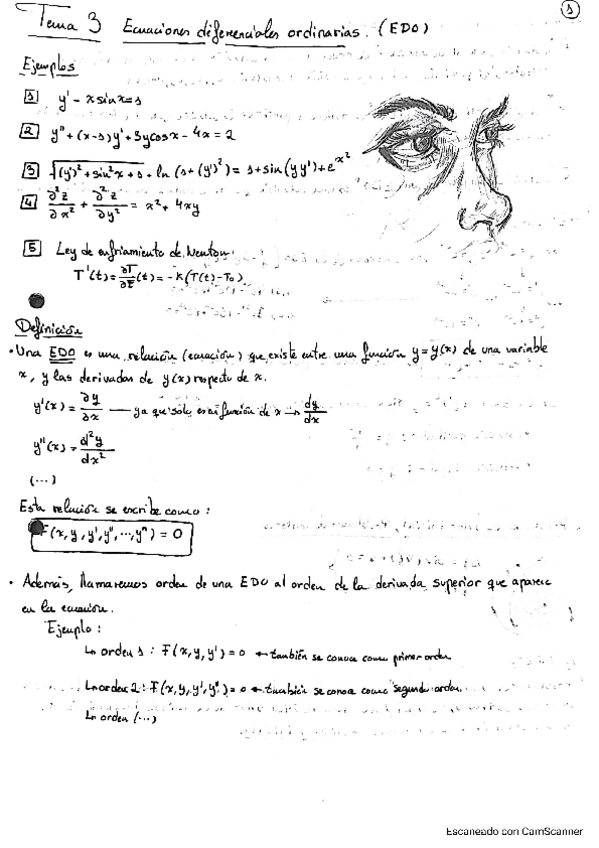 1
Tema 3 Ecuaciones diferenciales ordinarias. (EDO)
Ejemplos
1 y' - x sin x = 1
2 y'' + (x-1)y' + 3y cos x - 4x = 2
3 √((y')² + sin²x + 1) + ln(1+(y')²) = 1 + sin(yy') + e^x²
4 ∂²z/∂x² + ∂²z/∂y² = x² + 4xy
5 Ley de enfriamiento de Newton:
T'(t) = ∂T/∂t (t) = -K(T(t) - T₀)
Definición
• Una EDO es una relación (ecuación) que existe entre una función y = y(x) de una variable
x, y las derivadas de y(x) respecto de x.
y'(x) = ∂y/∂x — ya que solo es en función de x → dy/dx
y''(x) = d²y/dx²
(...)
Esta relación se escribe como:
F(x, y, y', y'', ..., yⁿ) = 0
• Además, llamaremos orden de una EDO al orden de la derivada superior que aparece
en la ecuación.
Ejemplo:
↳ orden 1: F(x, y, y') = 0 ← también se conoce como primer orden
↳ orden 2: F(x, y, y', y'') = 0 ← también se conoce como segundo orden.
↳ orden (...)
Escaneado con CamScanner